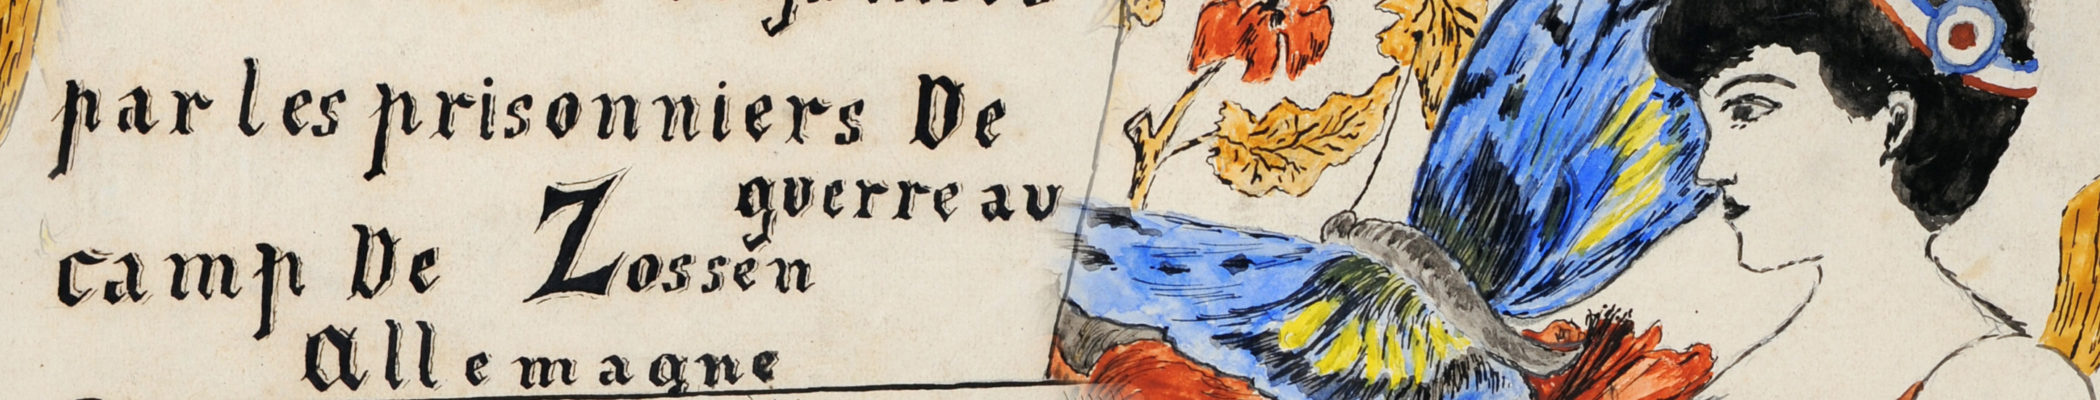 par les prisonniers De
guerre au
camp De Zossen
Allemagne